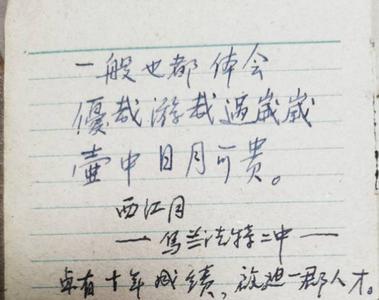 一般也都体会
優哉游哉過歲歲
壶中日月可贵。
西江月
——乌兰浩特二中——
卓有十年成绩，放逐一郡人才。